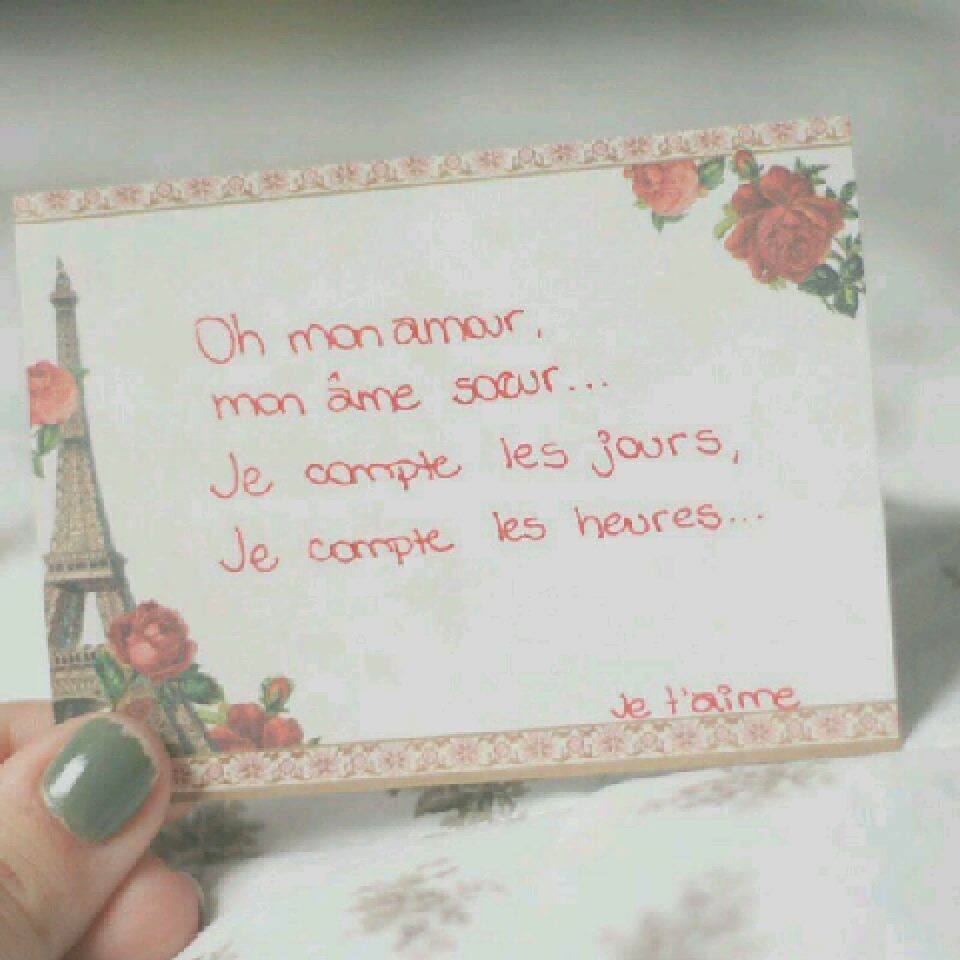 Oh mon amour,
mon âme sœur...
Je compte les jours,
Je compte les heures...
Je t'aime